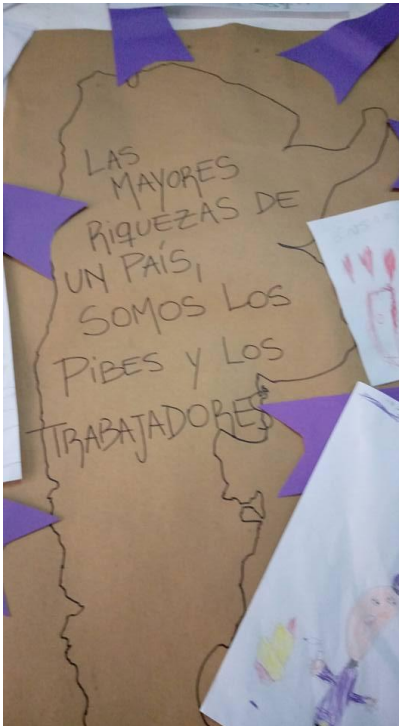 LAS
MAYORES
RIQUEZAS DE
UN PAÍS,
SOMOS LOS
PIBES Y LOS
TRABAJADORES